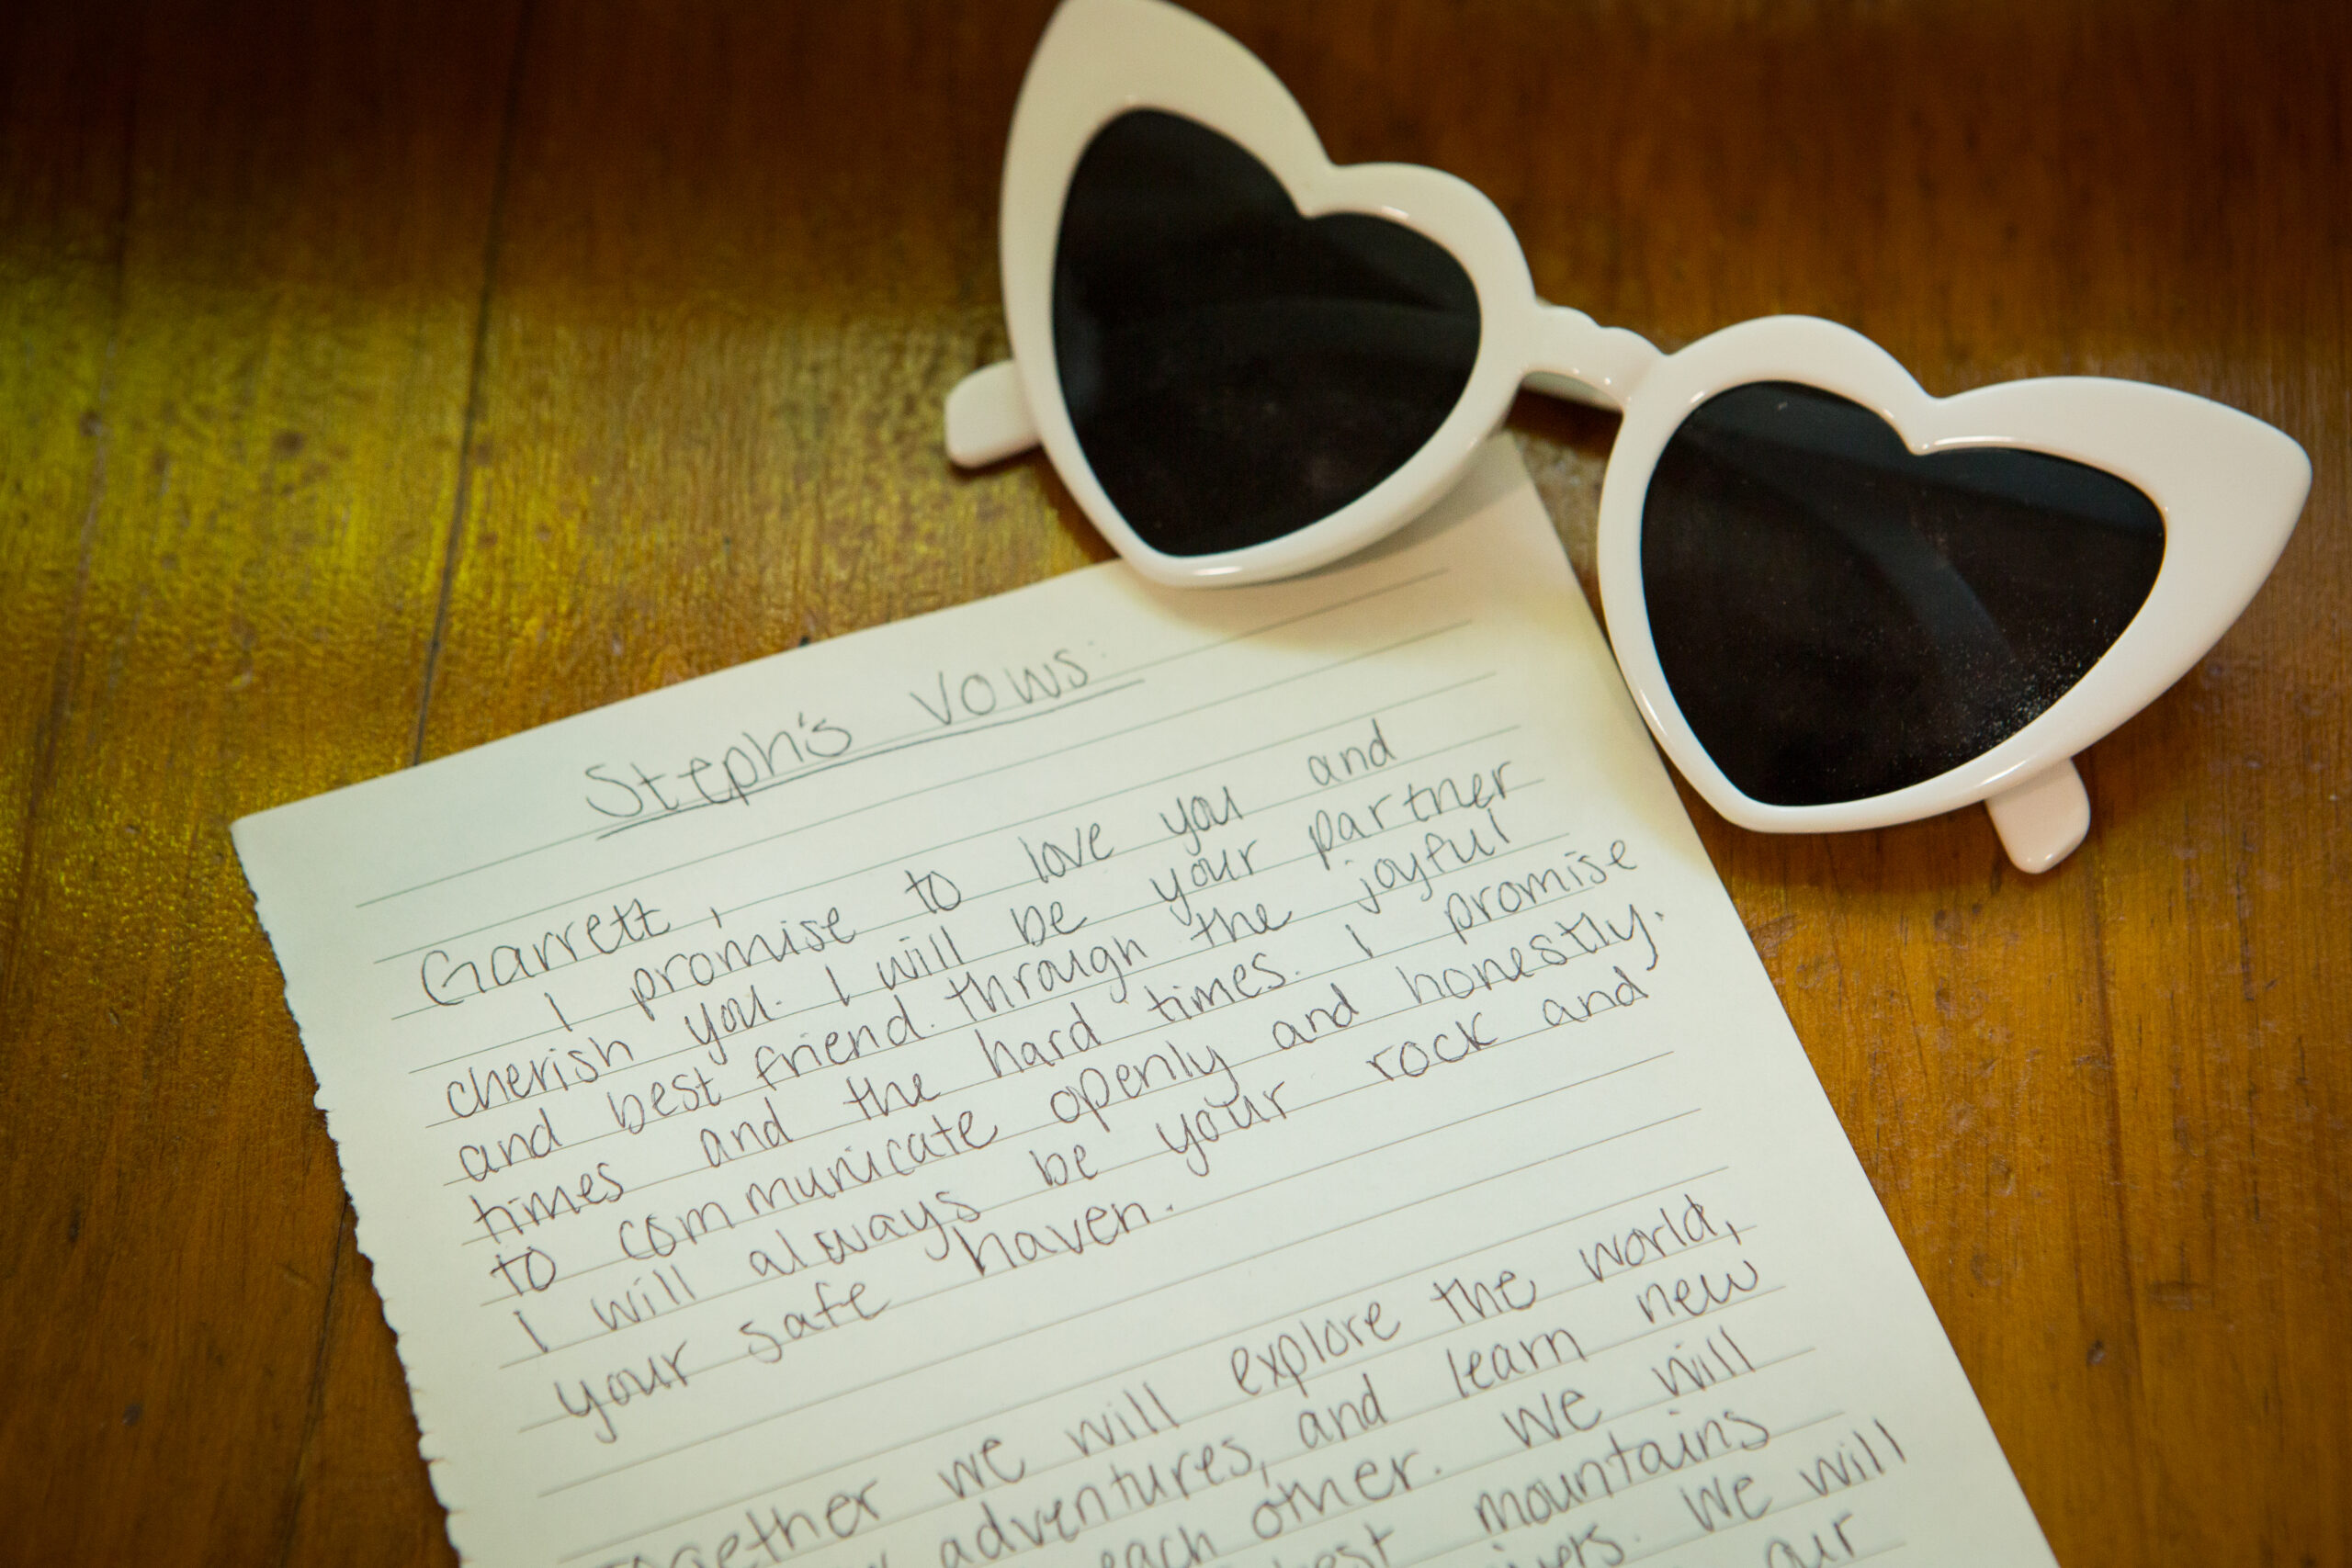 Steph's Vows:
Garrett,
I promise to love you and
cherish you. I will be your partner
and best friend through the joyful
times and the hard times. I promise
to communicate openly and honestly.
I will always be your rock and
your safe haven.
Together we will explore the world,
adventures, and learn new
each other. We will
mountains
We will
our